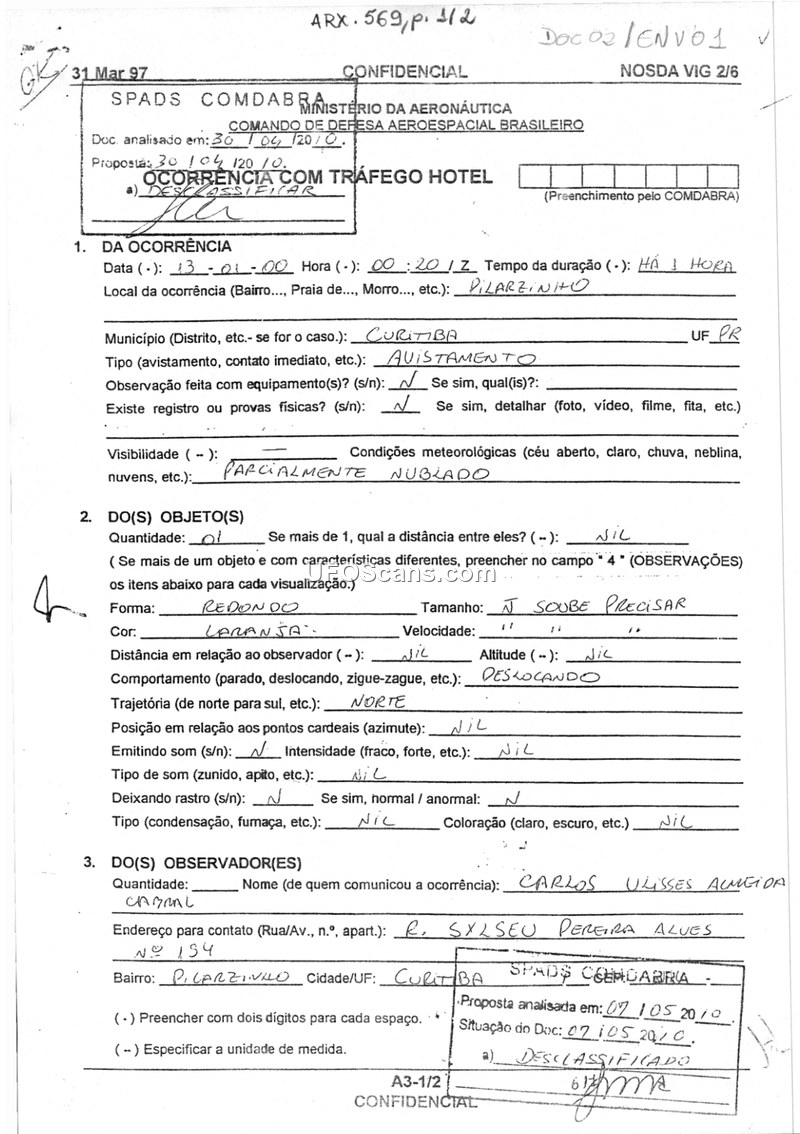 ARX. 569, p. 1/2
DOC 02 / ENV 01
31 Mar 97 CONFIDENCIAL NOSDA VIG 2/6
SPADS COMDABRA
MINISTÉRIO DA AERONÁUTICA
COMANDO DE DEFESA AEROESPACIAL BRASILEIRO
Doc. analisado em: 30 / 04 / 2010.
Proposta: 30 / 04 / 2010.
OCORRÊNCIA COM TRÁFEGO HOTEL
a) DESCLASSIFICAR
(Preenchimento pelo COMDABRA)
1. DA OCORRÊNCIA
Data ( - ): 13 - 01 - 00 Hora ( - ): 00 : 20 / Z Tempo da duração ( - ): HÁ 1 HORA
Local da ocorrência (Bairro..., Praia de..., Morro..., etc.): PILARZINHO
Município (Distrito, etc.- se for o caso.): CURITIBA UF PR
Tipo (avistamento, contato imediato, etc.): AVISTAMENTO
Observação feita com equipamento(s)? (s/n): N Se sim, qual(is)?:
Existe registro ou provas físicas? (s/n): N Se sim, detalhar (foto, vídeo, filme, fita, etc.)
Visibilidade ( -- ): — Condições meteorológicas (céu aberto, claro, chuva, neblina,
nuvens, etc.): PARCIALMENTE NUBLADO
2. DO(S) OBJETO(S)
Quantidade: 01 Se mais de 1, qual a distância entre eles? ( -- ): NIL
( Se mais de um objeto e com características diferentes, preencher no campo " 4 " (OBSERVAÇÕES)
os itens abaixo para cada visualização.)
UFOScans.com
Forma: REDONDO Tamanho: Ñ SOUBE PRECISAR
Cor: LARANJA Velocidade: " " "
Distância em relação ao observador ( -- ): NIL Altitude ( -- ): NIL
Comportamento (parado, deslocando, zigue-zague, etc.): DESLOCANDO
Trajetória (de norte para sul, etc.): NORTE
Posição em relação aos pontos cardeais (azimute): NIL
Emitindo som (s/n): N Intensidade (fraco, forte, etc.): NIL
Tipo de som (zunido, apito, etc.): NIL
Deixando rastro (s/n): N Se sim, normal / anormal: N
Tipo (condensação, fumaça, etc.): NIL Coloração (claro, escuro, etc.) NIL
3. DO(S) OBSERVADOR(ES)
Quantidade: Nome (de quem comunicou a ocorrência): CARLOS ULISSES ALMEIDA
CABRAL
Endereço para contato (Rua/Av., n.º, apart.): R. PEREIRA ALVES
Nº 194
Bairro: PILARZINHO Cidade/UF: CURITIBA CEP:
SPADS COMDABRA
( - ) Preencher com dois dígitos para cada espaço.
Proposta analisada em: 07 / 05 2010
Situação do Doc: 07 / 05 2010.
( -- ) Especificar a unidade de medida.
a) DESCLASSIFICADO
A3-1/2
CONFIDENCIAL